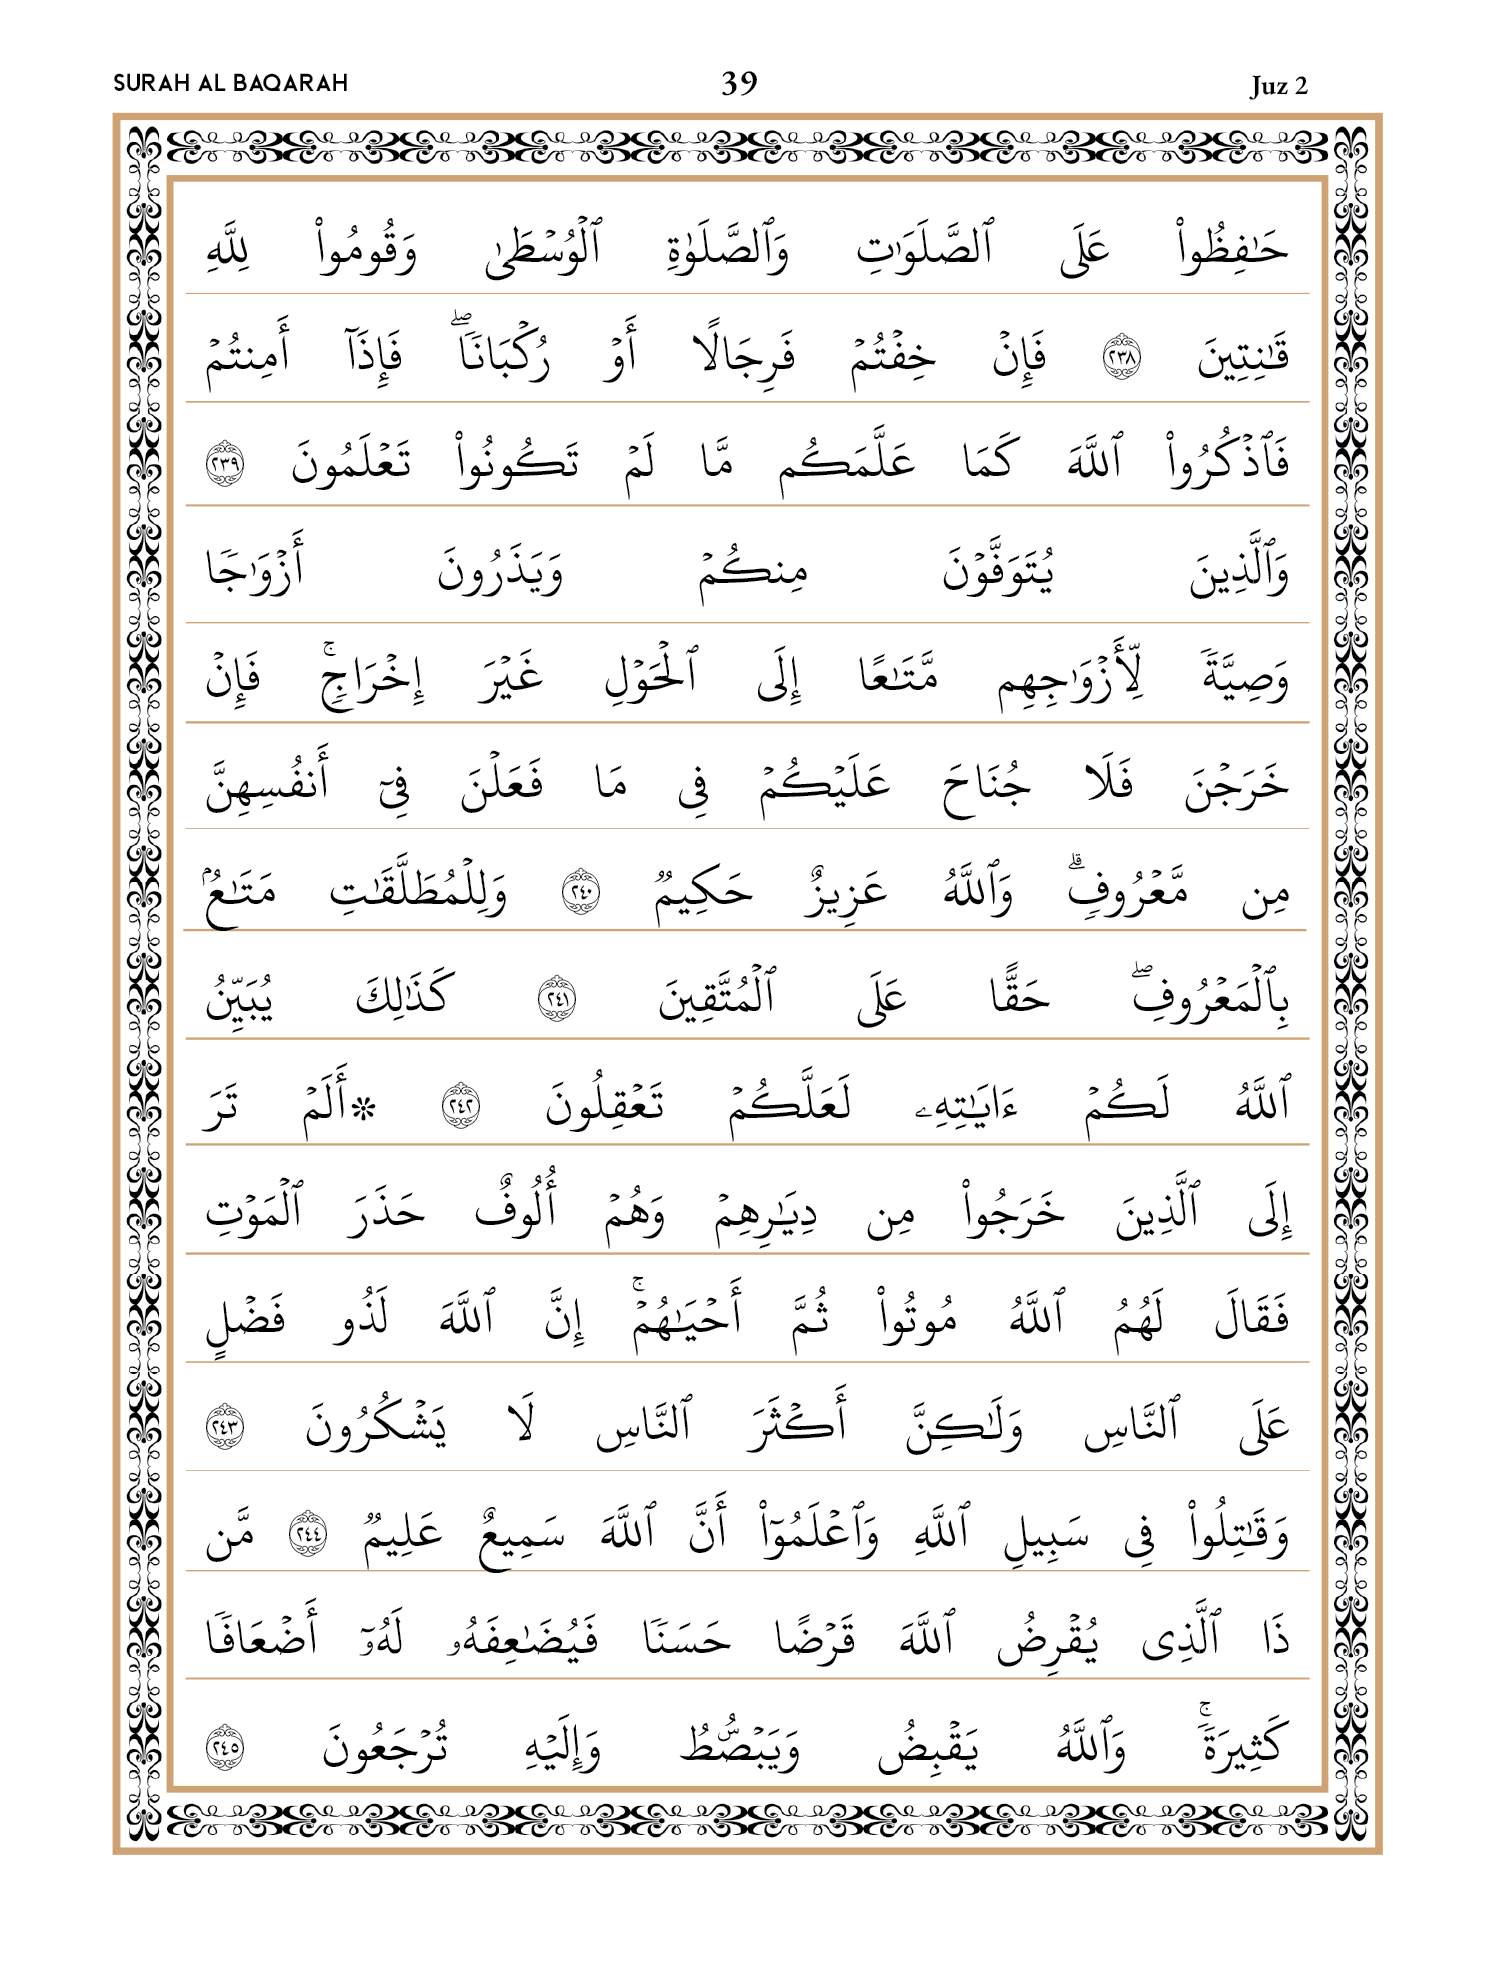 SURAH AL BAQARAH 39 Juz 2
حَـٰفِظُوا۟ عَلَى ٱلصَّلَوَٰتِ وَٱلصَّلَوٰةِ ٱلْوُسْطَىٰ وَقُومُوا۟ لِلَّهِ
قَـٰنِتِينَ ٢٣٨ فَإِنْ خِفْتُمْ فَرِجَالًا أَوْ رُكْبَانًا ۖ فَإِذَآ أَمِنتُمْ
فَٱذْكُرُوا۟ ٱللَّهَ كَمَا عَلَّمَكُم مَّا لَمْ تَكُونُوا۟ تَعْلَمُونَ ٢٣٩
وَٱلَّذِينَ يُتَوَفَّوْنَ مِنكُمْ وَيَذَرُونَ أَزْوَٰجًا
وَصِيَّةً لِّأَزْوَٰجِهِم مَّتَـٰعًا إِلَى ٱلْحَوْلِ غَيْرَ إِخْرَاجٍ ۚ فَإِنْ
خَرَجْنَ فَلَا جُنَاحَ عَلَيْكُمْ فِى مَا فَعَلْنَ فِىٓ أَنفُسِهِنَّ
مِن مَّعْرُوفٍ ۗ وَٱللَّهُ عَزِيزٌ حَكِيمٌ ٢٤٠ وَلِلْمُطَلَّقَـٰتِ مَتَـٰعٌۢ
بِٱلْمَعْرُوفِ ۖ حَقًّا عَلَى ٱلْمُتَّقِينَ ٢٤١ كَذَٰلِكَ يُبَيِّنُ
ٱللَّهُ لَكُمْ ءَايَـٰتِهِۦ لَعَلَّكُمْ تَعْقِلُونَ ٢٤٢ ۞أَلَمْ تَرَ
إِلَى ٱلَّذِينَ خَرَجُوا۟ مِن دِيَـٰرِهِمْ وَهُمْ أُلُوفٌ حَذَرَ ٱلْمَوْتِ
فَقَالَ لَهُمُ ٱللَّهُ مُوتُوا۟ ثُمَّ أَحْيَـٰهُمْ ۚ إِنَّ ٱللَّهَ لَذُو فَضْلٍ
عَلَى ٱلنَّاسِ وَلَـٰكِنَّ أَكْثَرَ ٱلنَّاسِ لَا يَشْكُرُونَ ٢٤٣
وَقَـٰتِلُوا۟ فِى سَبِيلِ ٱللَّهِ وَٱعْلَمُوٓا۟ أَنَّ ٱللَّهَ سَمِيعٌ عَلِيمٌ ٢٤٤ مَّن
ذَا ٱلَّذِى يُقْرِضُ ٱللَّهَ قَرْضًا حَسَنًا فَيُضَـٰعِفَهُۥ لَهُۥٓ أَضْعَافًا
كَثِيرَةً ۚ وَٱللَّهُ يَقْبِضُ وَيَبْصُۜطُ وَإِلَيْهِ تُرْجَعُونَ ٢٤٥